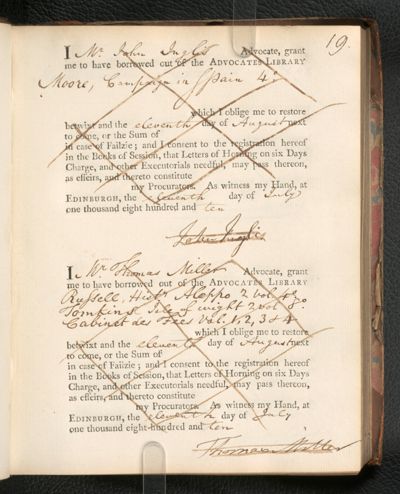 19.
I Mr. John Inglis Advocate, grant
me to have borrowed out of the ADVOCATES LIBRARY
Moore, Campaign in Spain 4o
which I oblige me to restore
betwixt and the eleventh day of August next
to come, or the Sum of
in case of Failzie; and I consent to the registration hereof
in the Books of Session, that Letters of Horning on six Days
Charge, and other Executorials needful, may pass thereon,
as effeirs, and thereto constitute
my Procurators. As witness my Hand, at
EDINBURGH, the eleventh day of July
one thousand eight hundred and ten
John Inglis
I Mr. Thomas Miller Advocate, grant
me to have borrowed out of the ADVOCATES LIBRARY
Russell, Histy Aleppo 2 vol 4o
Tomkins's Isle of wight 2 vol 8o
Cabinet des Fées Vol. 1, 2, 3 & 4
which I oblige me to restore
betwixt and the eleventh day of August next
to come, or the Sum of
in case of Failzie; and I consent to the registration hereof
in the Books of Session, that Letters of Horning on six Days
Charge, and other Executorials needful, may pass thereon,
as effeirs, and thereto constitute
my Procurators. As witness my Hand, at
EDINBURGH, the eleventh day of July
one thousand eight hundred and ten
Thomas Miller